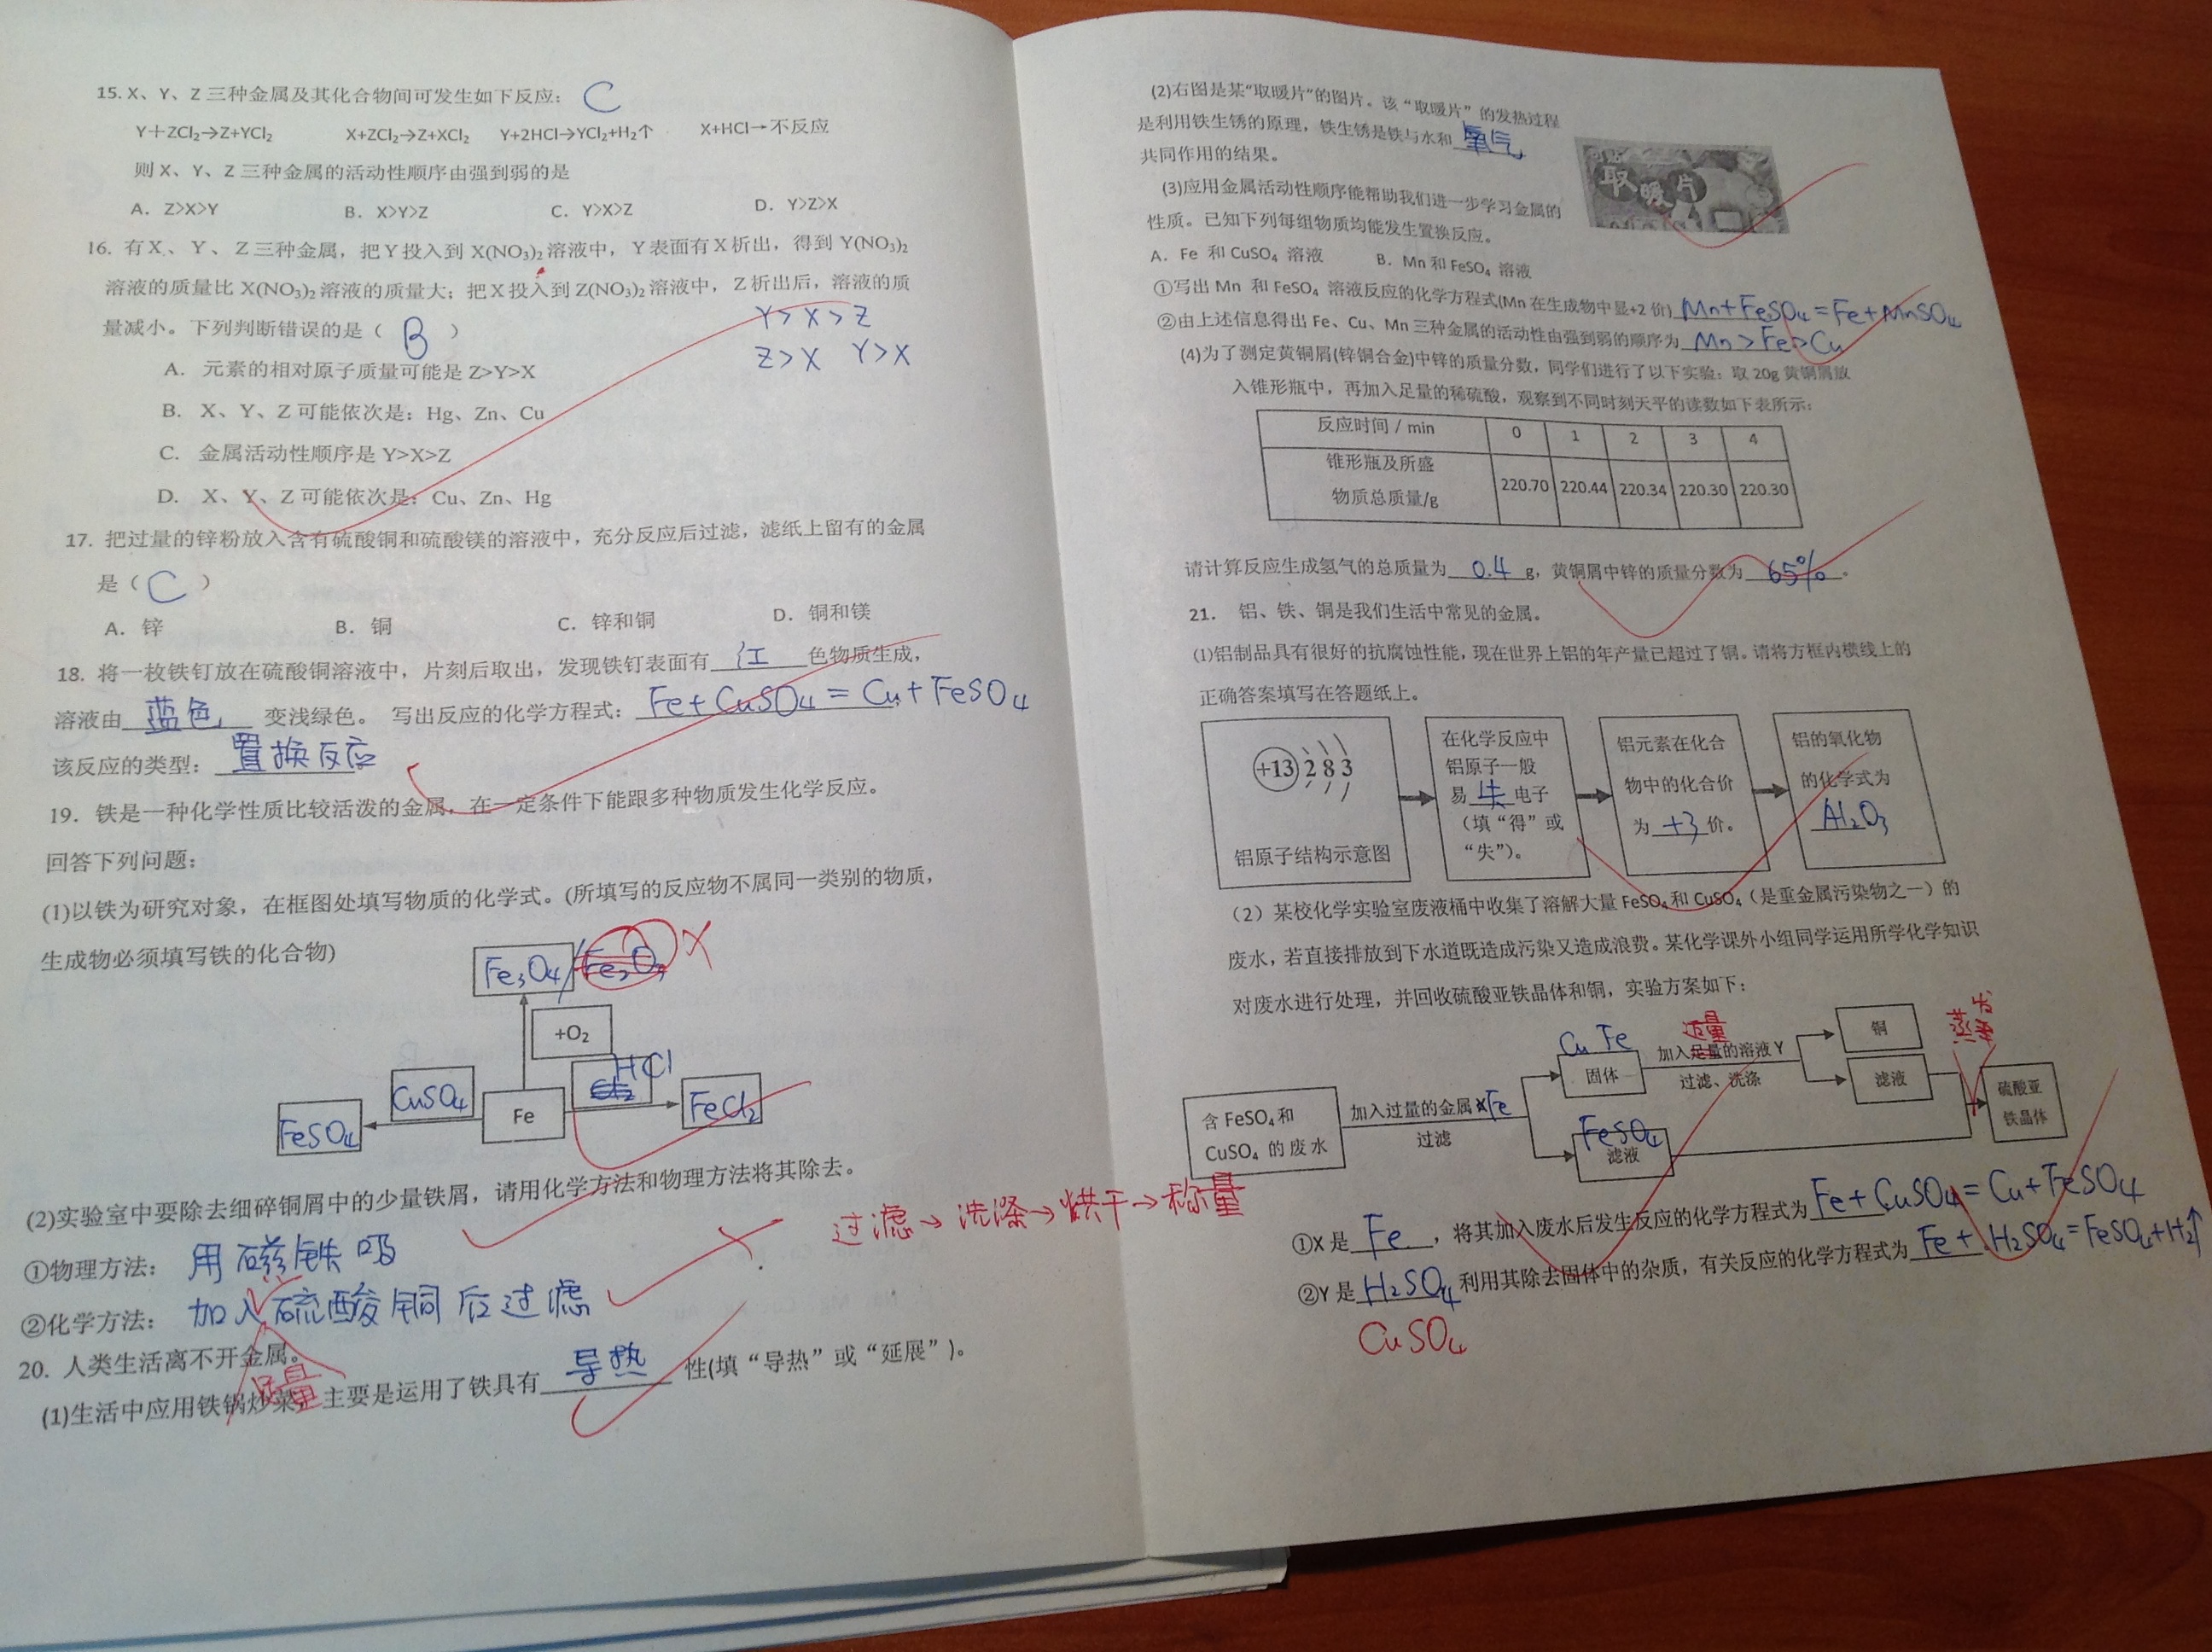 15. X、Y、Z 三种金属及其化合物间可发生如下反应： C
Y＋ZCl₂→Z+YCl₂ X+ZCl₂→Z+XCl₂ Y+2HCl→YCl₂+H₂↑ X+HCl→不反应
则 X、Y、Z 三种金属的活动性顺序由强到弱的是
A. Z>X>Y B. X>Y>Z C. Y>X>Z D. Y>Z>X
16. 有 X、Y、Z 三种金属，把 Y 投入到 X(NO₃)₂ 溶液中，Y 表面有 X 析出，得到 Y(NO₃)₂
溶液的质量比 X(NO₃)₂ 溶液的质量大；把 X 投入到 Z(NO₃)₂ 溶液中，Z 析出后，溶液的质
量减小。下列判断错误的是（ B ）
Y>X>Z
Z>X Y>X
A. 元素的相对原子质量可能是 Z>Y>X
B. X、Y、Z 可能依次是：Hg、Zn、Cu
C. 金属活动性顺序是 Y>X>Z
D. X、Y、Z 可能依次是：Cu、Zn、Hg
17. 把过量的锌粉放入含有硫酸铜和硫酸镁的溶液中，充分反应后过滤，滤纸上留有的金属
是（ C ）
A. 锌 B. 铜 C. 锌和铜 D. 铜和镁
18. 将一枚铁钉放在硫酸铜溶液中，片刻后取出，发现铁钉表面有 红 色物质生成，
溶液由 蓝色 变浅绿色。 写出反应的化学方程式： Fe+CuSO₄=Cu+FeSO₄
该反应的类型： 置换反应
19. 铁是一种化学性质比较活泼的金属，在一定条件下能跟多种物质发生化学反应。
回答下列问题：
(1)以铁为研究对象，在框图处填写物质的化学式。(所填写的反应物不属同一类别的物质，
生成物必须填写铁的化合物)
Fe₃O₄/Fe₂O₃
+O₂
HCl
CuSO₄
FeSO₄
Fe
FeCl₂
(2)实验室中要除去细碎铜屑中的少量铁屑，请用化学方法和物理方法将其除去。
①物理方法： 用磁铁吸
②化学方法： 加入硫酸铜后过滤
足量
过滤→洗涤→烘干→称量
20. 人类生活离不开金属。
(1)生活中应用铁锅炒菜，主要是运用了铁具有 导热 性(填“导热”或“延展”)。
(2)右图是某“取暖片”的图片。该“取暖片”的发热过程
是利用铁生锈的原理，铁生锈是铁与水和 氧气
共同作用的结果。
取暖片
(3)应用金属活动性顺序能帮助我们进一步学习金属的
性质。已知下列每组物质均能发生置换反应。
A. Fe 和 CuSO₄ 溶液 B. Mn 和 FeSO₄ 溶液
①写出 Mn 和 FeSO₄ 溶液反应的化学方程式(Mn 在生成物中显+2 价) Mn+FeSO₄=Fe+MnSO₄
②由上述信息得出 Fe、Cu、Mn 三种金属的活动性由强到弱的顺序为 Mn>Fe>Cu
(4)为了测定黄铜屑(锌铜合金)中锌的质量分数，同学们进行了以下实验：取 20g 黄铜屑放
入锥形瓶中，再加入足量的稀硫酸，观察到不同时刻天平的读数如下表所示：
反应时间 / min 0 1 2 3 4
锥形瓶及所盛
物质总质量/g 220.70 220.44 220.34 220.30 220.30
请计算反应生成氢气的总质量为 0.4 g，黄铜屑中锌的质量分数为 65% 。
21. 铝、铁、铜是我们生活中常见的金属。
(1)铝制品具有很好的抗腐蚀性能，现在世界上铝的年产量已超过了铜。请将方框内横线上的
正确答案填写在答题纸上。
+13 2 8 3
铝原子结构示意图
在化学反应中
铝原子一般
易 失 电子
（填“得”或
“失”）。
铝元素在化合
物中的化合价
为 +3 价。
铝的氧化物
的化学式为
Al₂O₃
（2）某校化学实验室废液桶中收集了溶解大量 FeSO₄ 和 CuSO₄（是重金属污染物之一）的
废水，若直接排放到下水道既造成污染又造成浪费。某化学课外小组同学运用所学化学知识
对废水进行处理，并回收硫酸亚铁晶体和铜，实验方案如下：
含 FeSO₄ 和
CuSO₄ 的废水
加入过量的金属 X Fe
过滤
Cu Fe
固体
FeSO₄
滤液
适量
加入足量的溶液 Y
过滤、洗涤
铜
滤液
蒸发
硫酸亚
铁晶体
①X 是 Fe ，将其加入废水后发生反应的化学方程式为 Fe+CuSO₄=Cu+FeSO₄
②Y 是 H₂SO₄ 利用其除去固体中的杂质，有关反应的化学方程式为 Fe+H₂SO₄=FeSO₄+H₂↑
CuSO₄